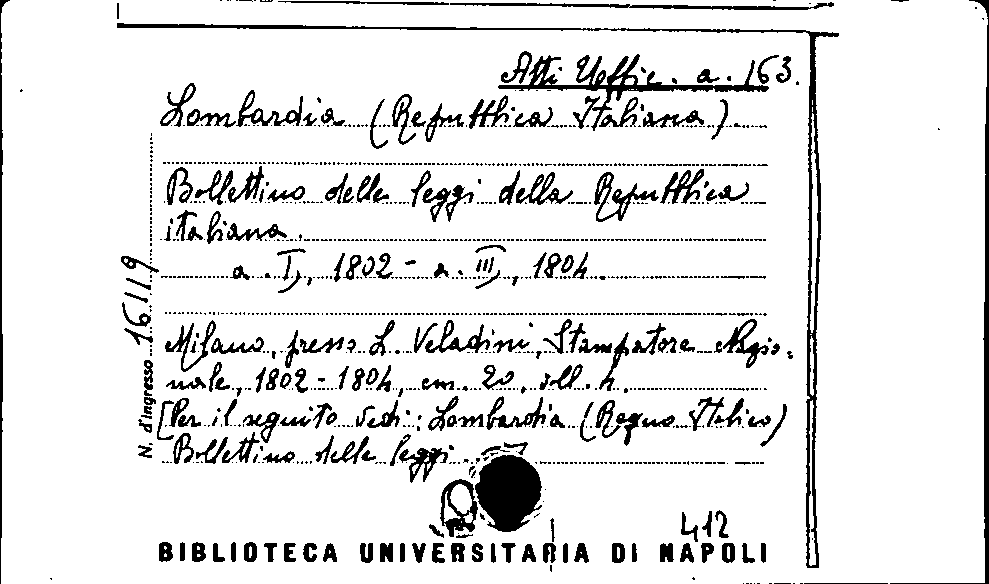 Atti Uffic. a. 163.
Lombardia (Repubblica Italiana).
Bollettino delle leggi della Repubblica
italiana.
a. I, 1802 - a. III, 1804.
Milano, presso L. Veladini, Stampatore Nazio=
nale, 1802 - 1804, cm. 20, voll. 4.
[Per il seguito vedi: Lombardia (Regno Italico)
Bollettino delle leggi.
N. d'ingresso 16119
412
BIBLIOTECA UNIVERSITARIA DI NAPOLI